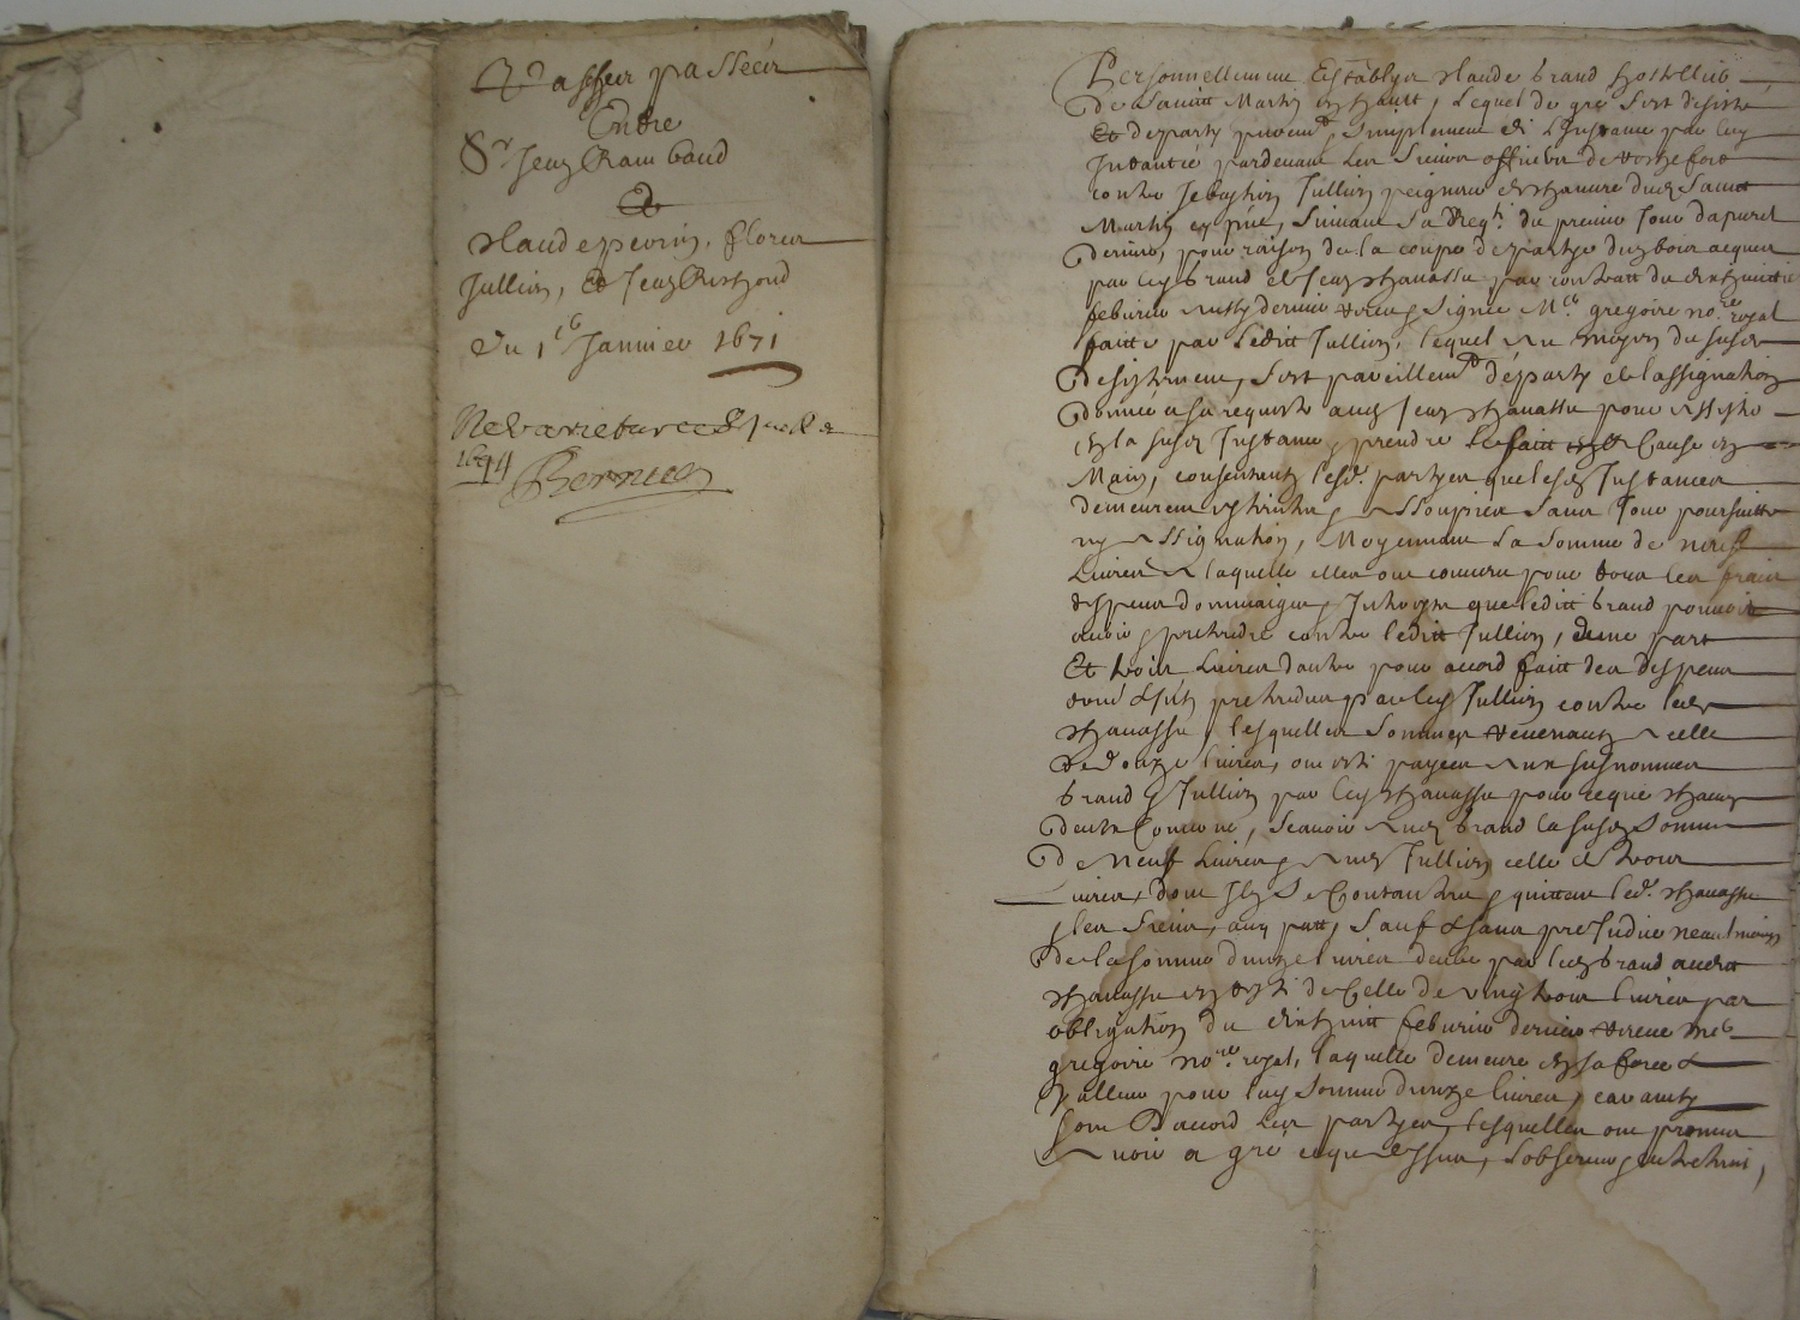 passéés
Entre
Sr Jean Rambaud
Et
Claude perrin, fleurs
Jullien, Et Jean Richoud
Du 16 Janvier 1671
Ne varietur ce 8
1694
Personnellement Establys Claude braud hostellier
de Sainctt Martin en hautt, Lequel de gré sest desisté
Et desparty purement & simplement de Linstance par luy
Intantée pardevant les sieurs officiers de Rochefort
contre sebastien Jullien peigneur de chanvre dud Sainctt
Martin en suivant sa Reqte du premier Jour dapvril
dernier, pour raison de la coupe de partye du bois acquis
par led braud de Jean chavassu par contratt du dixhuittie
febvrier aussy dernier receu & signé Me gregoire nore royal
faitte par Leditt Jullien, lequel au moyen du susd
desistement, sest pareillemt déparly de lassignation
donnée a sa requeste aud Jean chavassu pour assister
en la susd Instance & prendre le faitt & Cause en
Main, consentent lesd. partyes que lesd Instances
demeurent esteintes & assoupies sans Jour poursuitte
ny assignation, Moyennant La somme de neuf
Livres a laquelle elles ont convenu pour tous les frais
despens dommaiges & Interests que leditt braud pouvoit
avoir & pretendre contre leditt Jullien, dune part
Et trois Livres dautre pour accord faitt des despens
pretendus par led Jullien contre led
chavassu, lesquelles sommes revenant a celle
de douze livres, ont esté payées aux susnommes
braud & Jullien par led chavassu pour ce que chacun
deux Concerne, scavoir aud braud la susd somme
de Neuf Livres & aud Jullien celle de trois
Livres, dont Ilz se Contentent & quittent led. chavassu
& les siens, auq patt, sauf & sans preJudice neaulmoings
de la somme dunze livres deube par led braud auditt
chavassu en reste de Celle de vingt trois livres par
obligation du dixhuitt febvrier dernier receue Me
gregoire nore royal, laquelle demeure en sa force &
Valleur pour lad somme dunze livres, car ainsy
sont Daccord les partyes, lesquelles ont promis
avoir a gré ce que dessus, lobserver & entretenir,